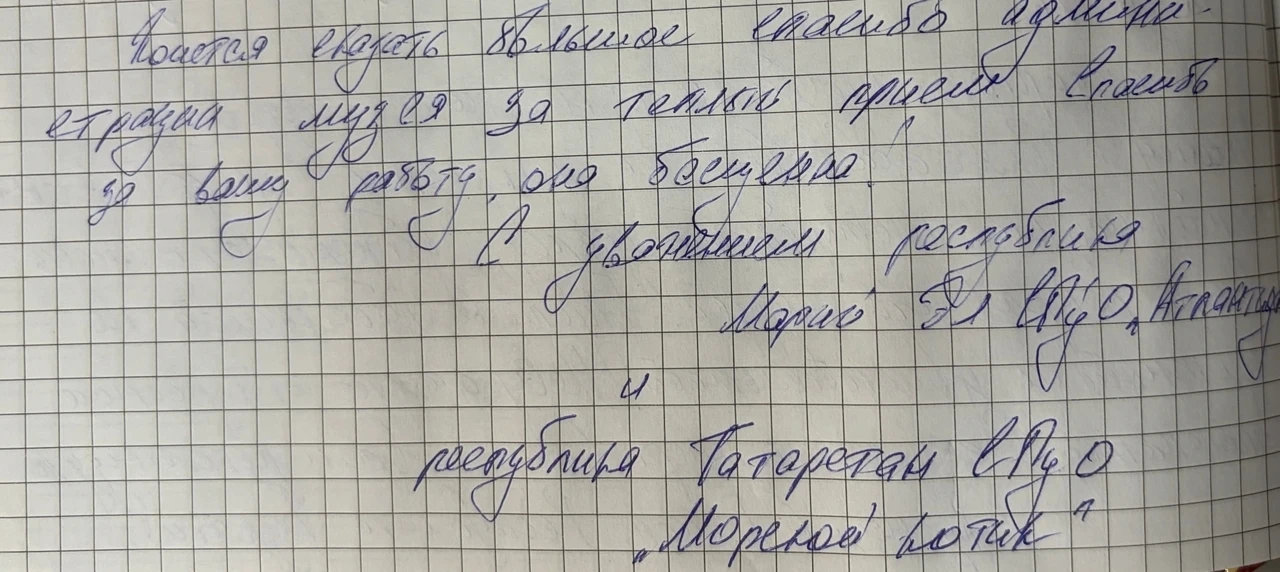 Хочется сказать большое спасибо админи-
страции музея за теплый прием! Спасибо
за вашу работу, она бесценна!
С уважением республика
Марий Эл СПуО „Атлантида
и
республика Татарстан СПуО
„Морской котик"